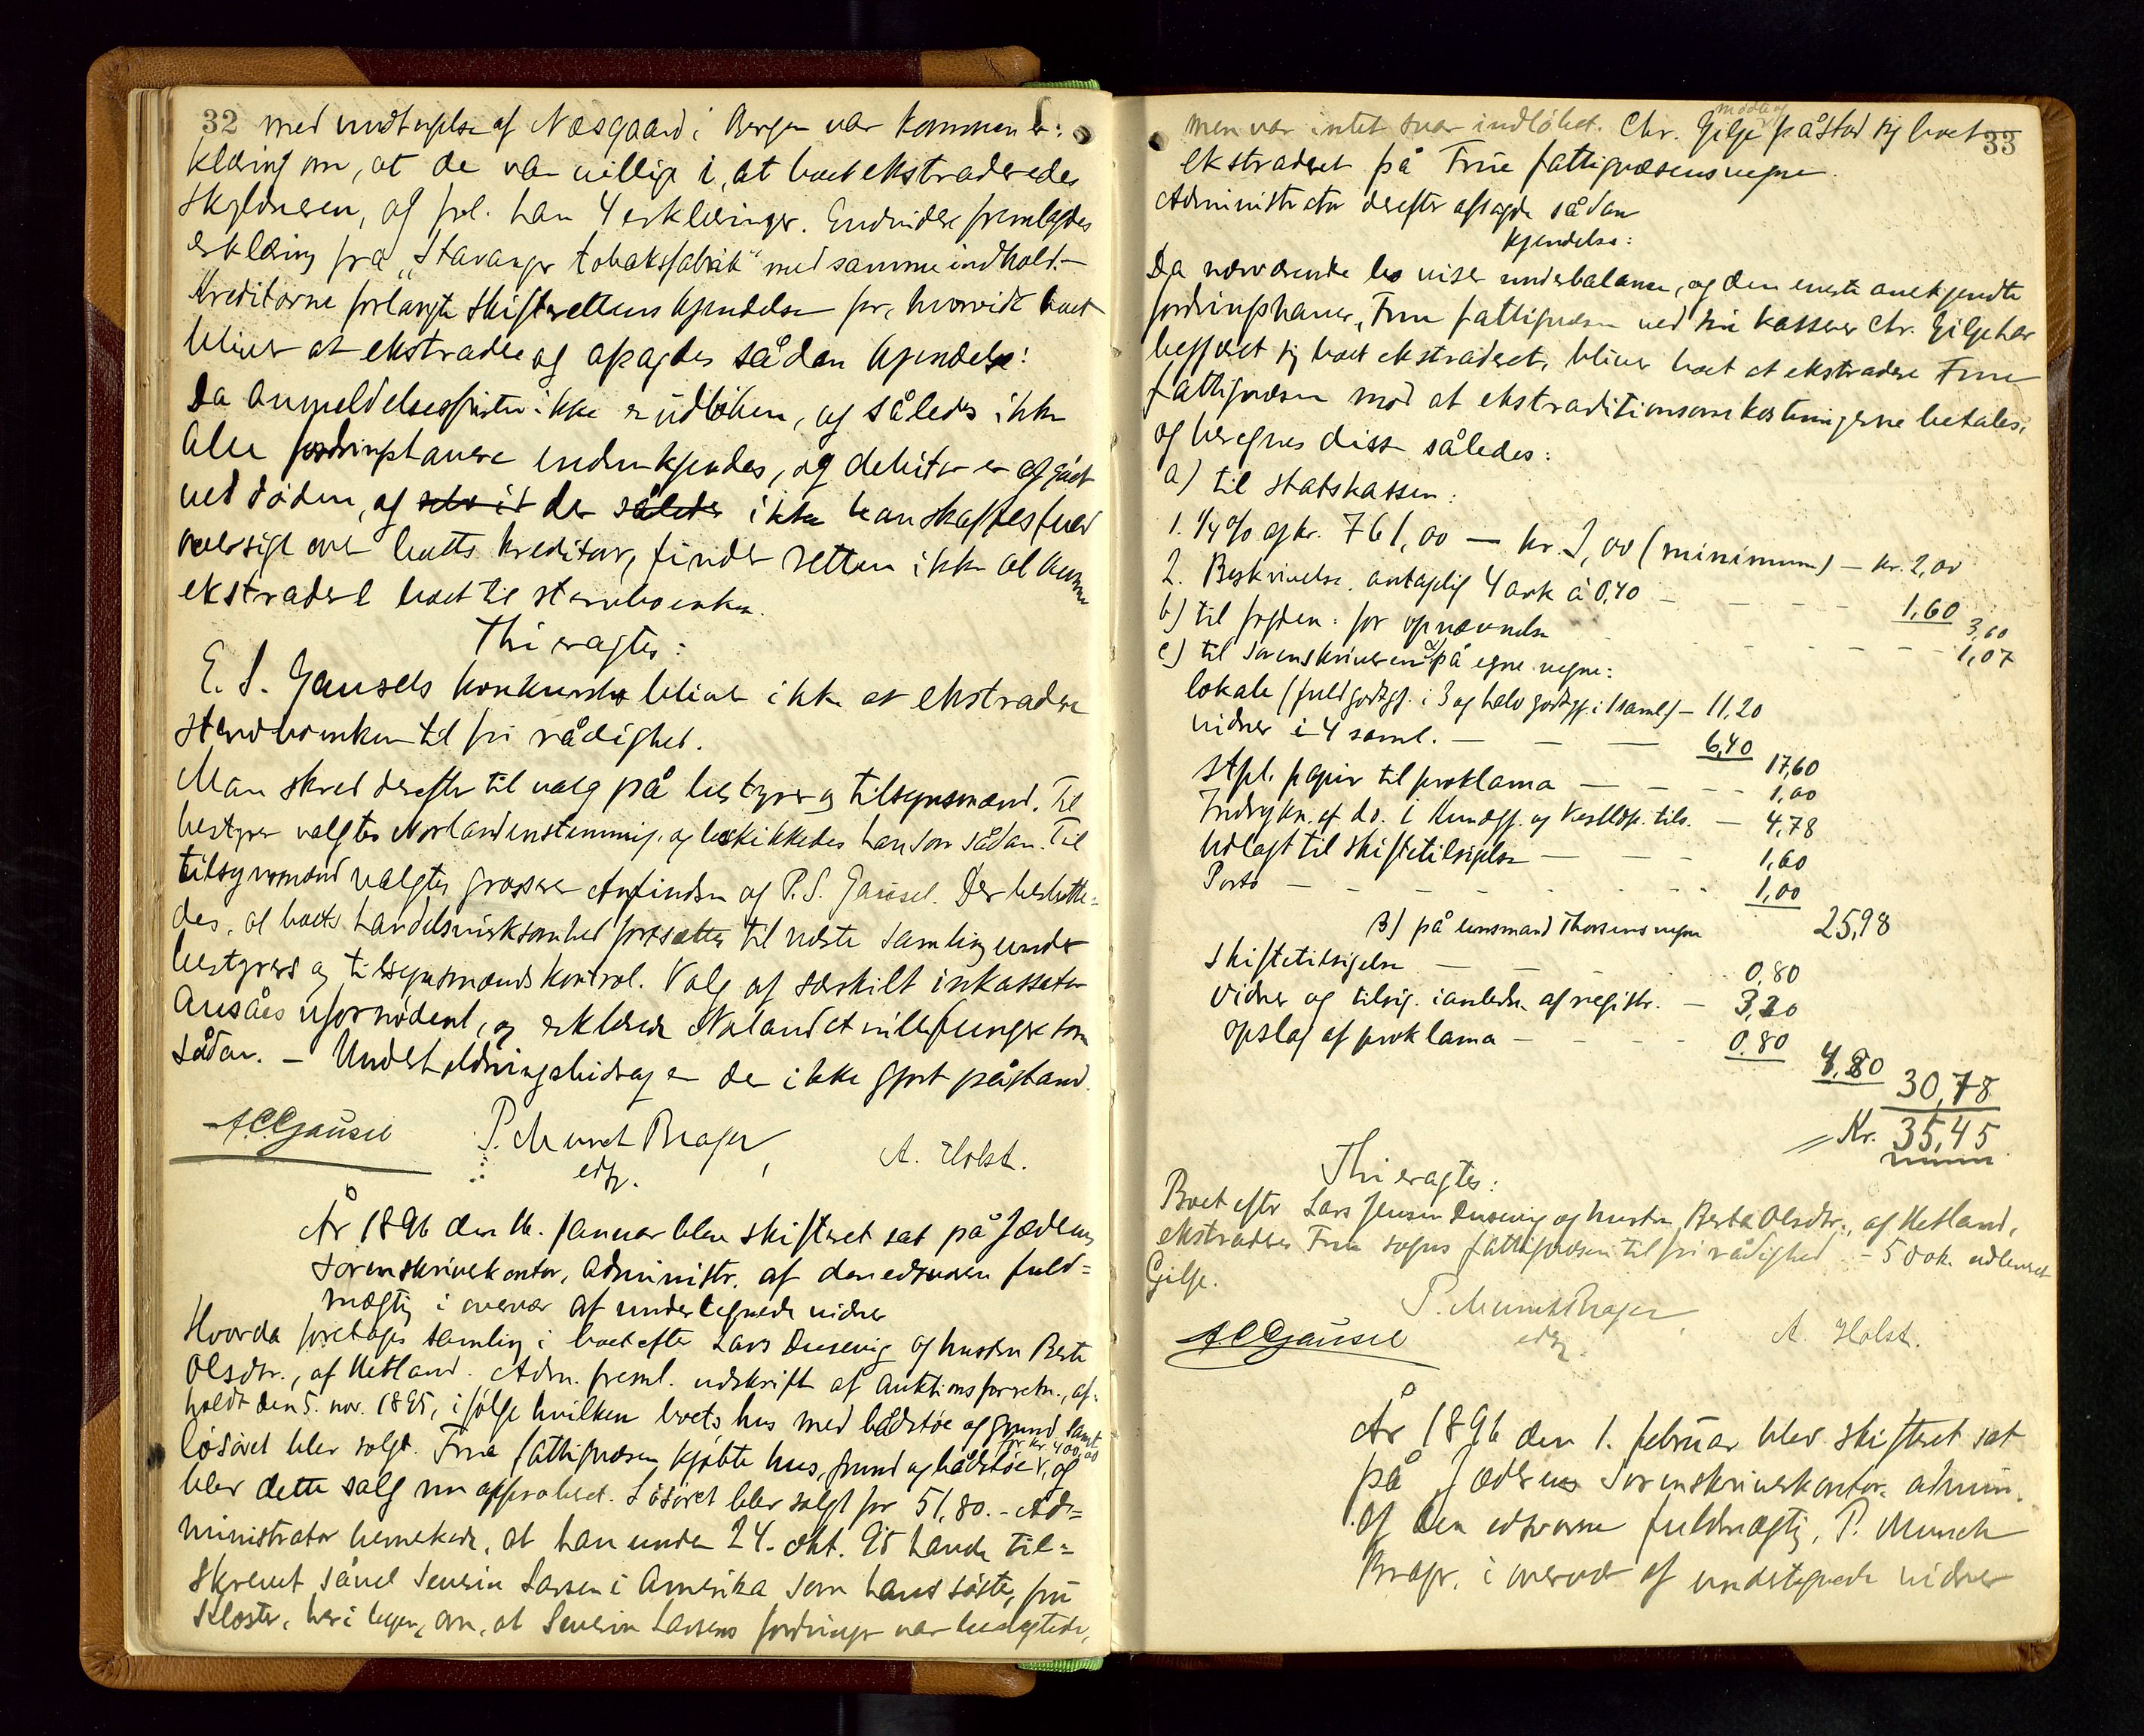 32 med undtagelse af Næsgaard i Bergen var kommen er:
klæring om, at de var villige i, at boet ekstraderedes
skyldneren, og frl. han 4 erklæringer. Endvidere fremlagdes
erklæring fra „Stavanger tobaksfabrik" med samme indhold. –
Kreditorne forlangte skifterettens kjendelse for, hvorvidt boet
bliver at ekstradere og afsagdes sådan kjendelse:
Da anmeldelsesfristen ikke er udløben, og således ikke
alle fordringshavere endnu kjendes, og debitor er afgået
ved døden, og der ikke kan skaffes fuld
oversigt over boets kreditorer, finder retten ikke at kunne
ekstradere boet til stervboenken.
Thi eragtes:
E. S. Gausels konkursbo bliver ikke at ekstradere
stervboenken til fri rådighed.
Man skred derefter til valg på bestyrer og tilsynsmænd. Til
bestyrer valgtes Norland enstemmig, og beskikkedes han som sådan. Til
tilsynsmænd valgtes grosserer Anfindsen og P. S. Gausel. Der beslutte=
des, at boets handelsvirksomhed fortsættes til næste samling under
bestyrers og tilsynsmænds kontrol. Valg af særskilt inkassator
ansåes ufornødent, og erklærede Norland at ville fungere som
sådan. – Underholdningsbidrag er der ikke gjort påstand.
A.C.Gausel P. Munch Brager, A. Holst.
edsv.
År 1896 den 16. januar blev skifteret sat på Jæderens
sorenskriverkontor, administr. af den edsvorne fuld=
mægtig i overvær af undertegnede vidner
Hvorda foretages samling i boet efter Lars Dusevig og hustru Berte
Olsdtr., af Hetland. Adm. freml. udskrift af auktionsforretn., af:
holdt den 5. nov. 1895, ifølge hvilken boets hus med bådstøe og grund samt
løsøret blev solgt. Frue fattigvæsen kjøbte hus, grund og bådstøe for kr. 400,00, og
blev dette salg nu approberet. Løsøret blev solgt for 51,80. – Ad=
ministrator bemerkede, at han under 24. okt. 95 havde til=
skrevet såvel Severin Larsen i Amerika som hans søster, fru
Kloster, her i byen, om, at Severin Larsens fordringer var benegtede,
33
men var intet svar indløbet. Chr. Gilje mødte og påstod sig boet
ekstraderet på Frue fattigvæsens vegne.
Administrator derefter afsagde sådan
kjendelse:
Da nærværende bo viser underbalance, og den eneste anerkjendte
fordringshaver, Frue fattigvæsen ved sin kasserer Chr. Gilje har
begjæret sig boet ekstraderet, bliver boet at ekstradere Frue
fattigvæsen mod at ekstraditionsomkostningerne betales,
og beregnes disse således:
a) til statskassen:
1. 1/4 % af kr. 761,00 — kr. 2,00 (minimum) – kr. 2,00
2. Beskrivelse, antagelig 4 ark à 0,40 – – – – 1,60 3,60
b) til fogden: for opnævnelse – – – – 1,07
c) til sorenskriveren α) på egne vegne:
lokale (fuld godtgj. i 3 og halv godtgj. i 1 saml.) – 11,20
vidner i 4 saml. – – – 6,40 17,60
stpl. papir til proklama – – – – 1,00
Indrykn. af do. i Kundgj. og tid. – 4,78
Udlagt til skiftetilsigelse – – – 1,60
Porto – – – – – – 1,00 25,98
β) på lensmand Thorsens vegne
skiftetilsigelse – – – – 0,80
Vidner og tilsig. i anledn. af registr. – 3,20
opslag af proklama – – – – 0.80 4,80 30,78
Kr. 35,45
Thi eragtes:
Boet efter Lars Jensen Dusevig og hustru Berta Olsdtr., af Hetland,
ekstraderes Frue sogns fattigvæsen til fri rådighed. – udleveret
Gilje.
P. Munch Brager,
A.C.Gausel edsv. A. Holst.
År 1896 den 1. februar blev skifteret sat
på Jæderens sorenskriverkontor, admin.
af den edsvorne fuldmægtig, P. Munch
Brager, i overvær af undertegnede vidner